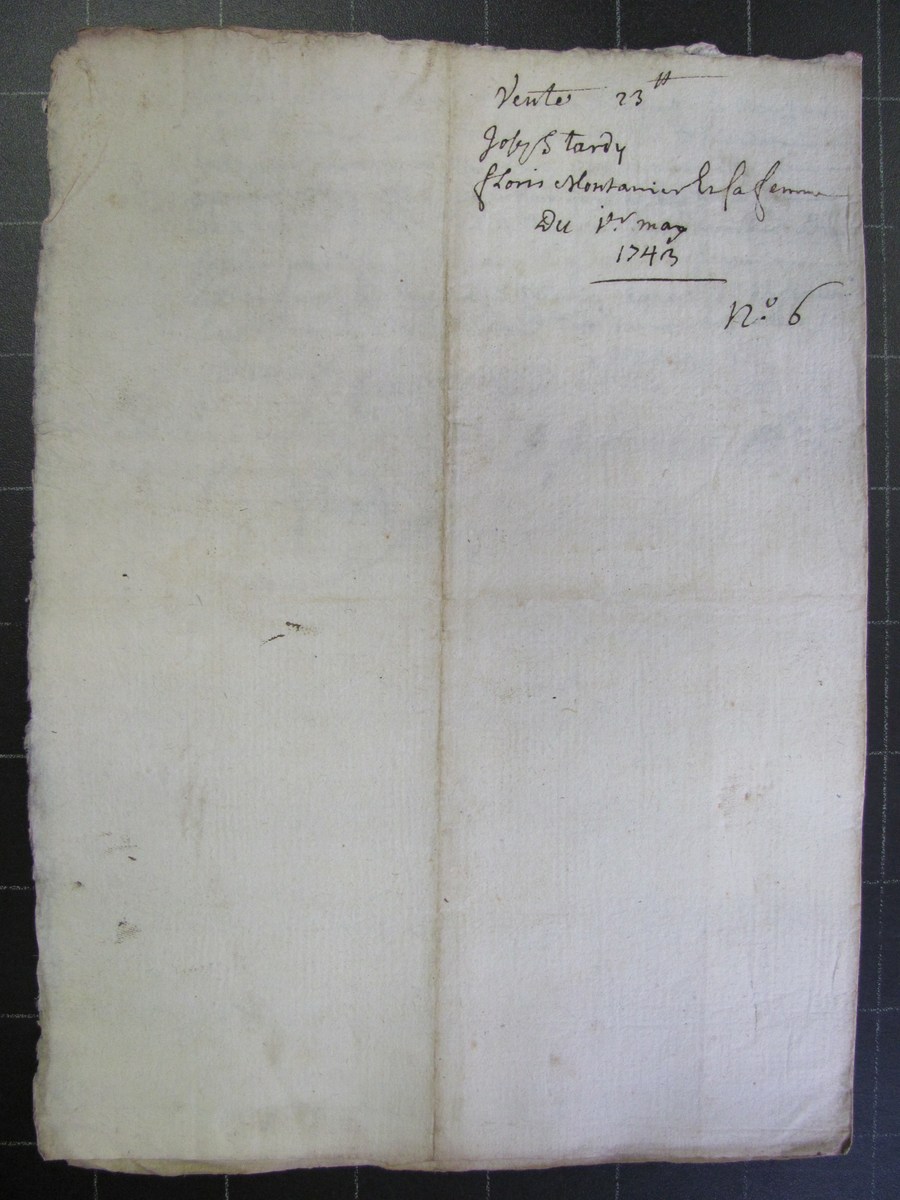 Vente 23 ₶
Joseph tardy
floris Montanier et sa femme
Du 1er may
1743
N.o 6